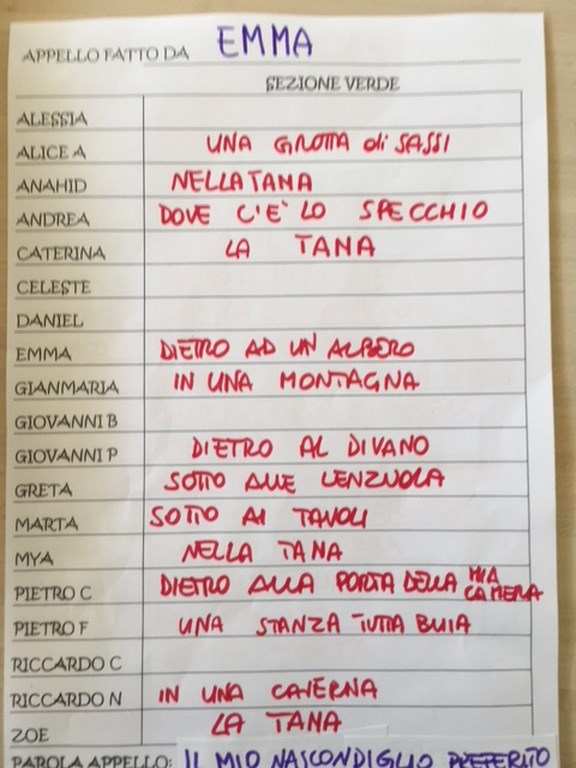 APPELLO FATTO DA EMMA
SEZIONE VERDE
ALESSIA
ALICE A UNA GROTTA di SASSI
ANAHID NELLA TANA
ANDREA DOVE C'E' LO SPECCHIO
CATERINA LA TANA
CELESTE
DANIEL
EMMA DIETRO AD UN ALBERO
GIANMARIA IN UNA MONTAGNA
GIOVANNI B
GIOVANNI P DIETRO AL DIVANO
GRETA SOTTO ALLE LENZUOLA
MARTA SOTTO AI TAVOLI
MYA NELLA TANA
PIETRO C DIETRO ALLA PORTA DELLA MIA CAMERA
PIETRO F UNA STANZA TUTTA BUIA
RICCARDO C
RICCARDO N IN UNA CAVERNA
ZOE LA TANA
PAROLA APPELLO: IL MIO NASCONDIGLIO PREFERITO